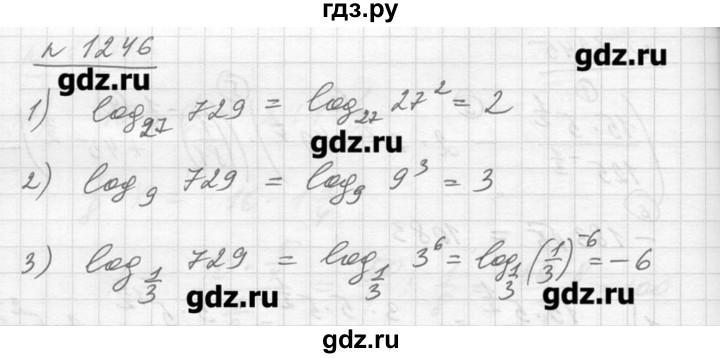 гдз.ру
№ 1246
gdz.ru
gdz.ru
1) log₂₇ 729 = log₂₇ 27² = 2
gdz.ru
2) log₉ 729 = log₉ 9³ = 3
3) log_{1/3} 729 = log_{1/3} 3⁶ = log_{1/3} (1/3)⁻⁶ = -6
gdz.ru
gdz.ru
gdz.ru